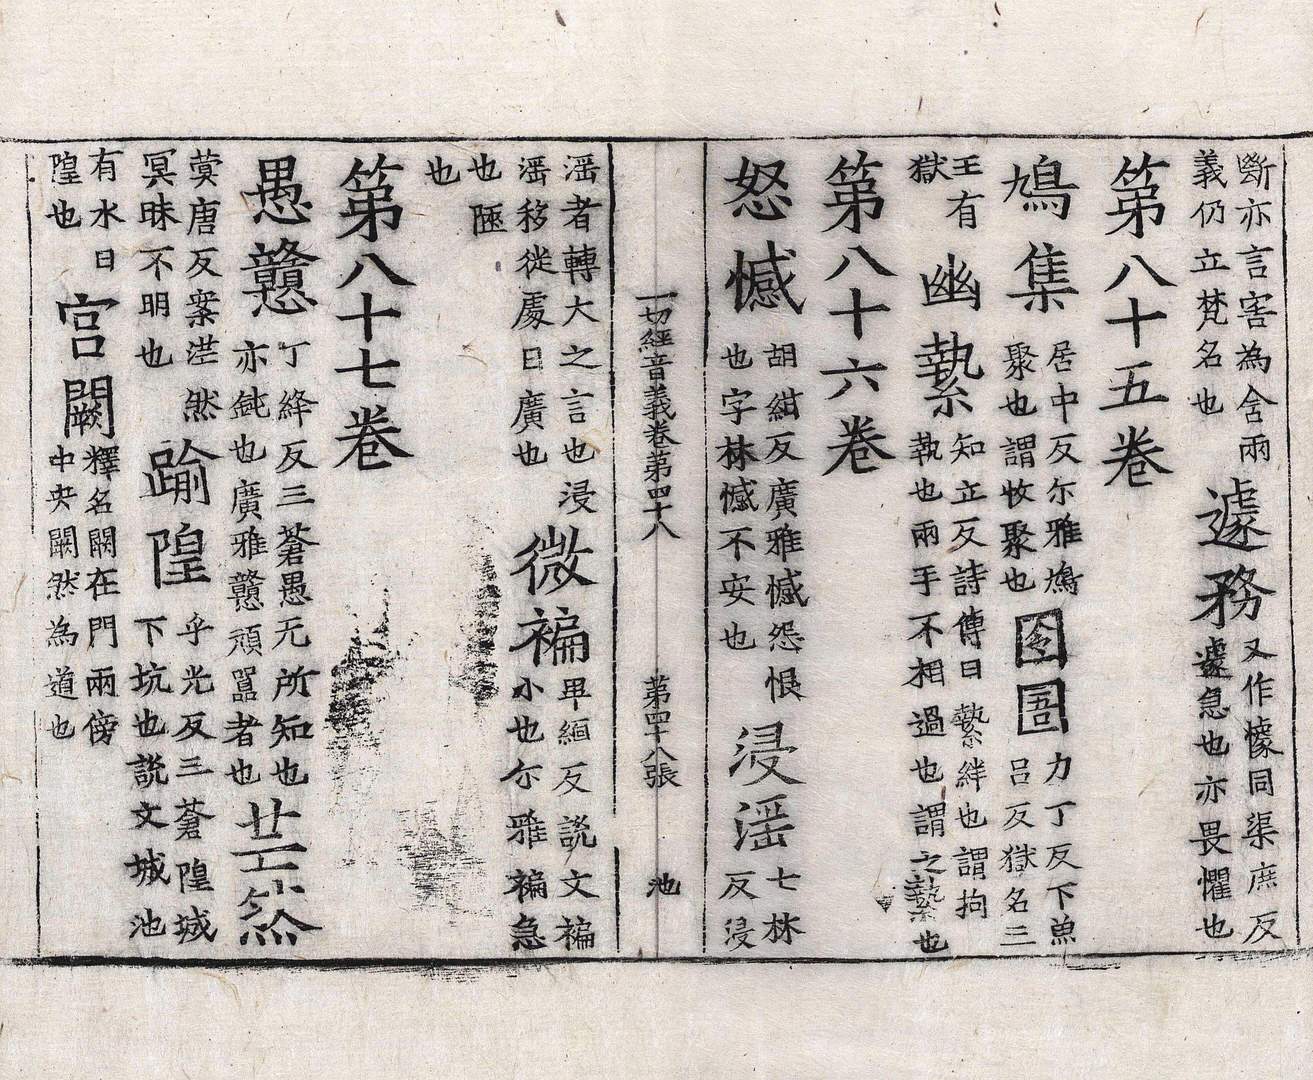 斷亦言害為含兩
義仍立梵名也
遽務
又作懅同渠庶反
遽急也亦畏懼也
第八十五卷
鳩集
居中反尓雅鳩
聚也謂收聚也
囹圄
力丁反下魚
吕反獄名三
王有
獄
幽縶
知立反詩傳曰縶絆也謂拘
執也兩手不相過也謂之縶也
第八十六卷
怒憾
胡紺反廣雅憾怨恨
也字林憾不安也
浸滛
七林
反浸
一切經音義卷第四十八
第四十八張
池
滛者轉大之言也浸
滛移徙處曰廣也
微褊
卑緬反說文褊
小也尓雅褊急
也𨻲
也
第八十七卷
愚戇
丁絳反三蒼愚无所知也
亦鈍也廣雅戇頑嚚者也
𦬇然
蓂唐反案茫然
冥昧不明也
踰隍
乎光反三蒼隍城
下坑也說文城池
有水曰
隍也
宫闕
釋名闕在門兩傍
中央闕然為道也